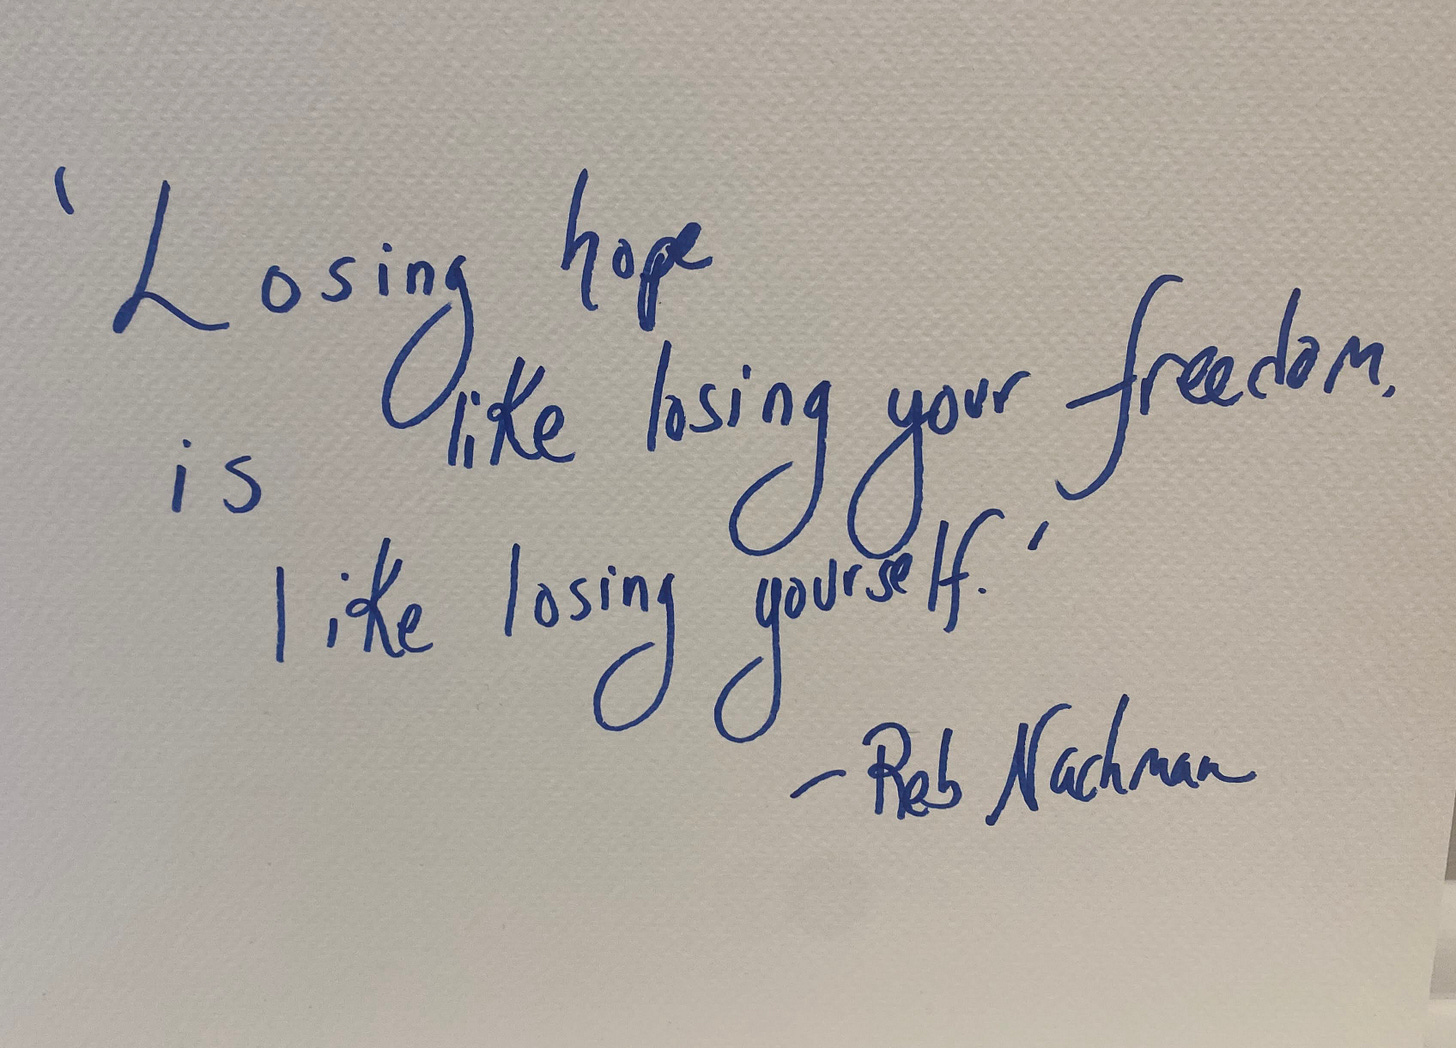 'Losing hope
is like losing your freedom,
like losing yourself.'
- Reb Nachman